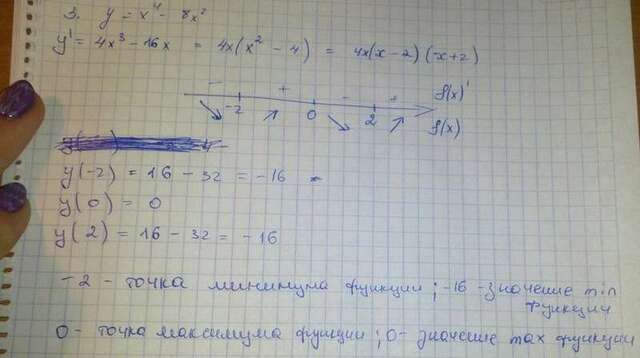 3. y = x⁴ - 8x²
y' = 4x³ - 16x = 4x(x² - 4) = 4x(x-2)(x+2)
- + - + f(x)'
-2 0 2 f(x)
y(-2) = 16 - 32 = -16
y(0) = 0
y(2) = 16 - 32 = -16
-2 - точка минимума функции; -16 - значение min
функции
0 - точка максимума функции; 0 - значение max функции